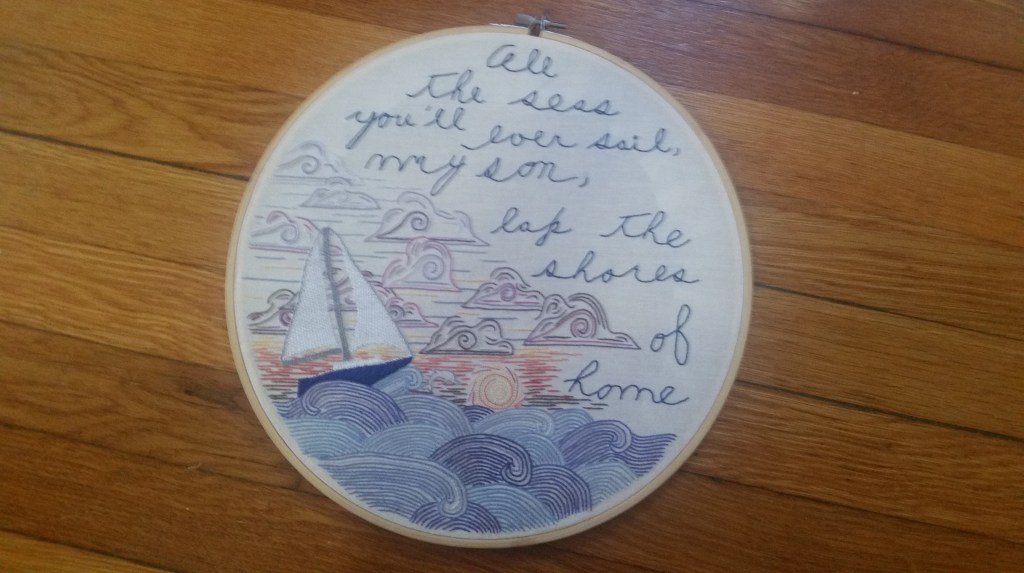 All
the seas
you'll ever sail,
my son,
lap the
shores
of
home